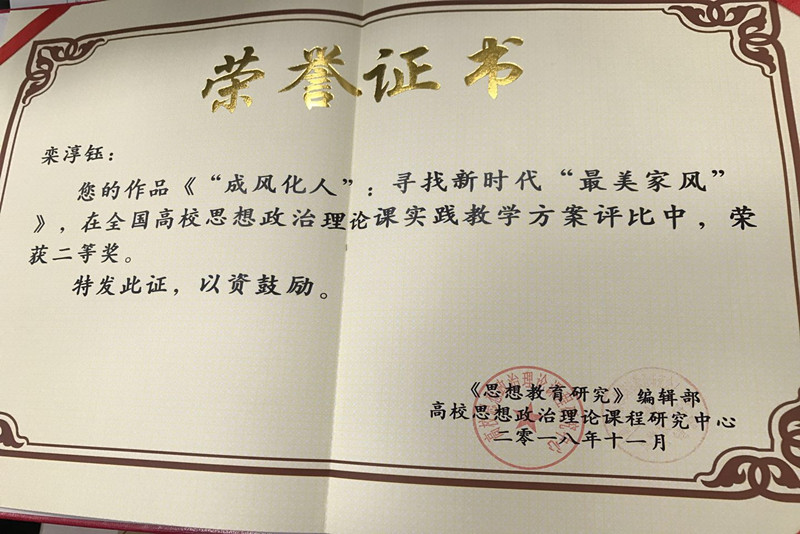 荣誉证书
栾淳钰：
您的作品《“成风化人”：寻找新时代“最美家风”
》，在全国高校思想政治理论课实践教学方案评比中，荣
获二等奖。
特发此证，以资鼓励。
《思想教育研究》编辑部
高校思想政治理论课程研究中心
二零一八年十一月